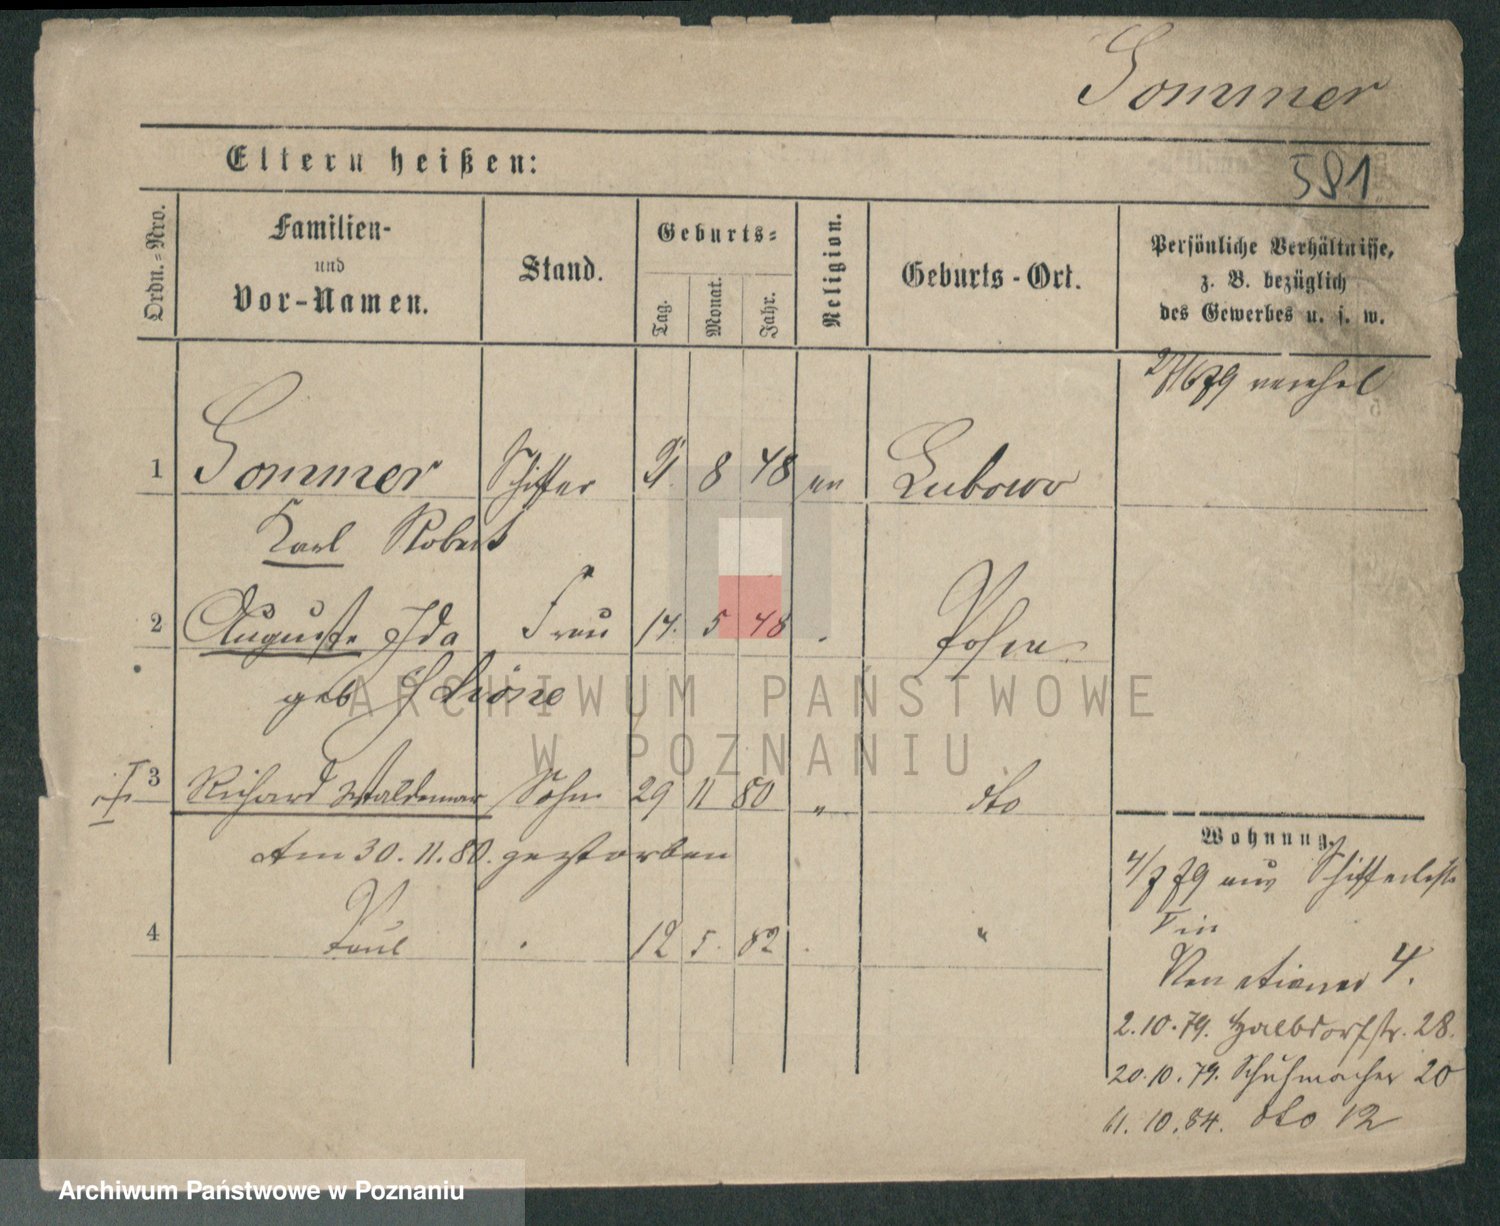 Sommer
Eltern heißen:
581
Ordn.-Nro.
Familien-
und
Vor-Namen.
Stand.
Geburts-
Tag.
Monat.
Jahr.
Religion.
Geburts-Ort.
Persönliche Verhältnisse,
z. B. bezüglich
des Gewerbes u. s. w.
verehel
1 Sommer Schiffer 8 48 ev Lubowo
Karl Robert
2 Auguste Ida Frau 14. 5 48 Posen
geb Schöne
3 Richard Waldemar Sohn 29 11 80 " dto
Am 30. 11. 80. gestorben
Wohnung.
4/7 79 aus
in
4 Paul 12 5. 82 "
4.
2.10.79. Halbdorfstr. 28.
20.10.79. Schuhmacher 20
11.10.84. dto 12
ARCHIWUM PAŃSTWOWE
W POZNANIU
Archiwum Państwowe w Poznaniu